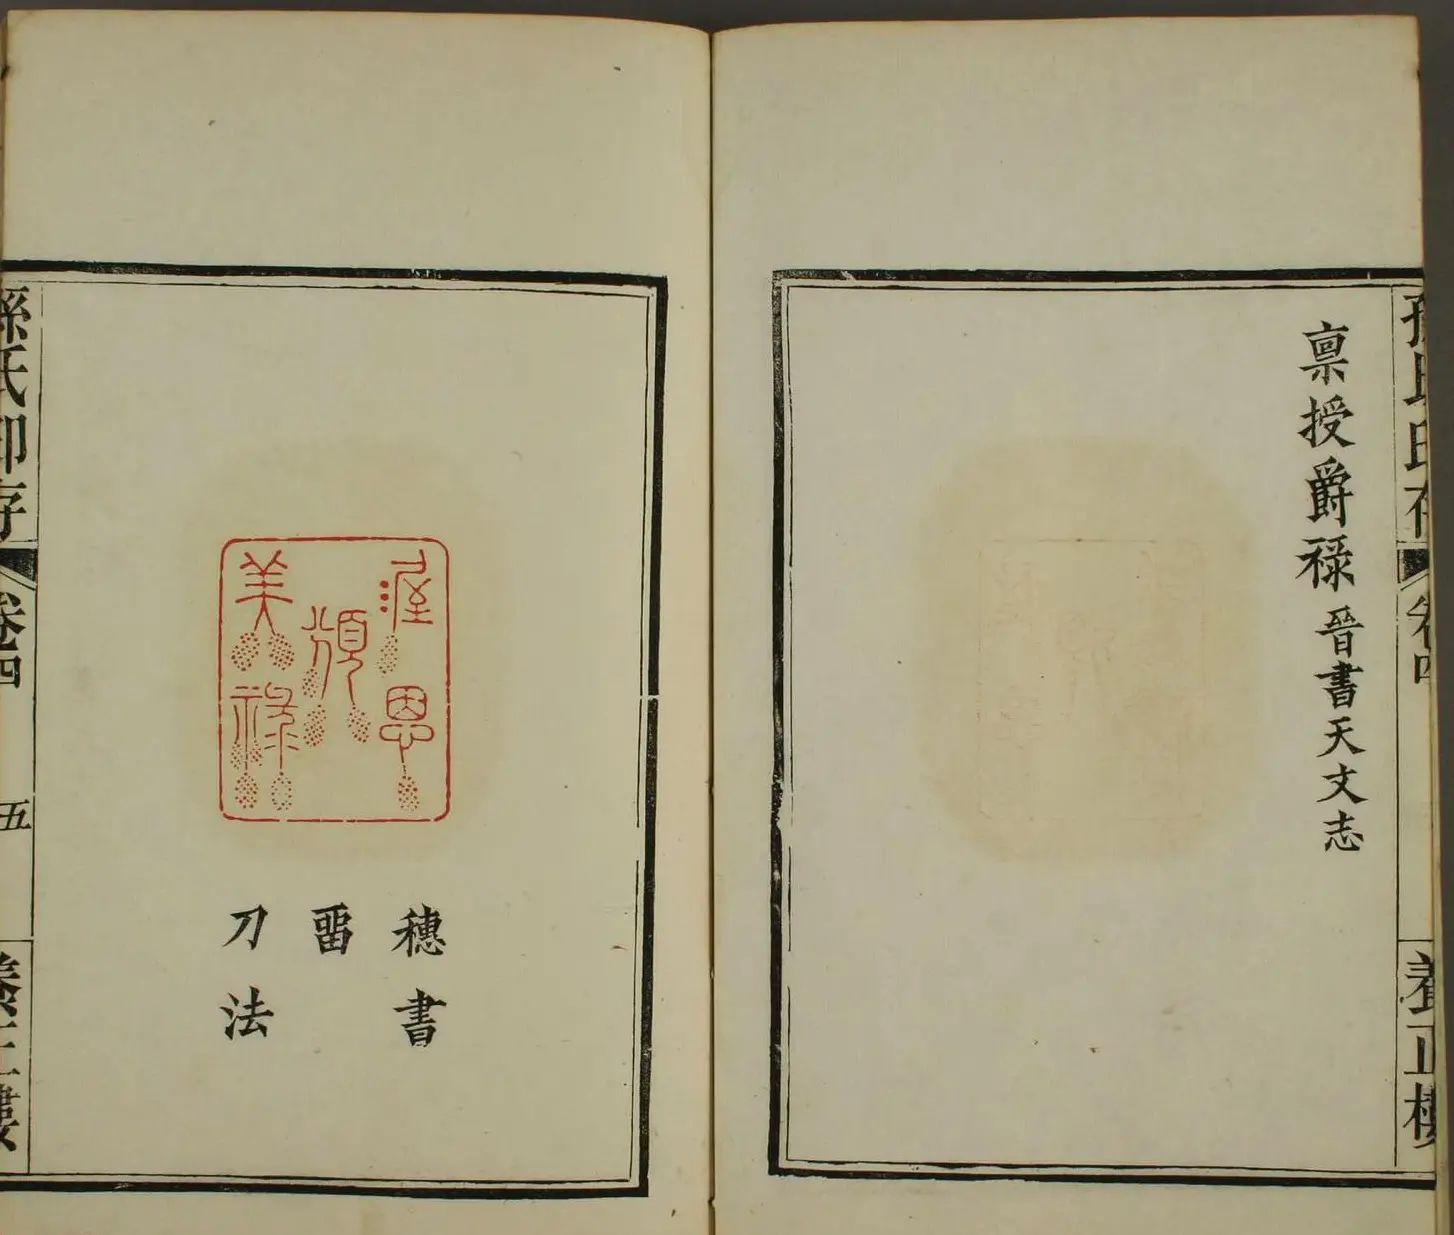 孫氏印存
卷四
養正樓
稟授爵祿 晉書天文志
渥恩
頒
美祿
穗書
畱
刀法
孫氏印存
卷四
五
養正樓